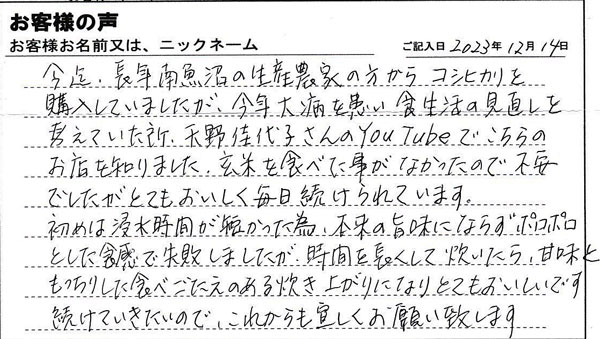 お客様の声
お客様お名前又は、ニックネーム ご記入日 2023年 12月 14日
今迄、長年南魚沼の生産農家の方から コシヒカリを
購入していましたが、今年大病を患い 食生活の見直しを
考えていた所、天野佳代子さんのYouTubeでこちらの
お店を知りました。玄米を食べた事がなかったので 不安
でしたがとてもおいしく毎日続けられています。
初めは浸水時間が短かった為、本来の旨味にならず ポロポロ
とした食感で失敗しましたが、時間を長くして 炊いたら、甘味と
もっちりした食べごたえのある炊き上がりになりとてもおいしいです
続けていきたいので、これからも宜しくお願い致します